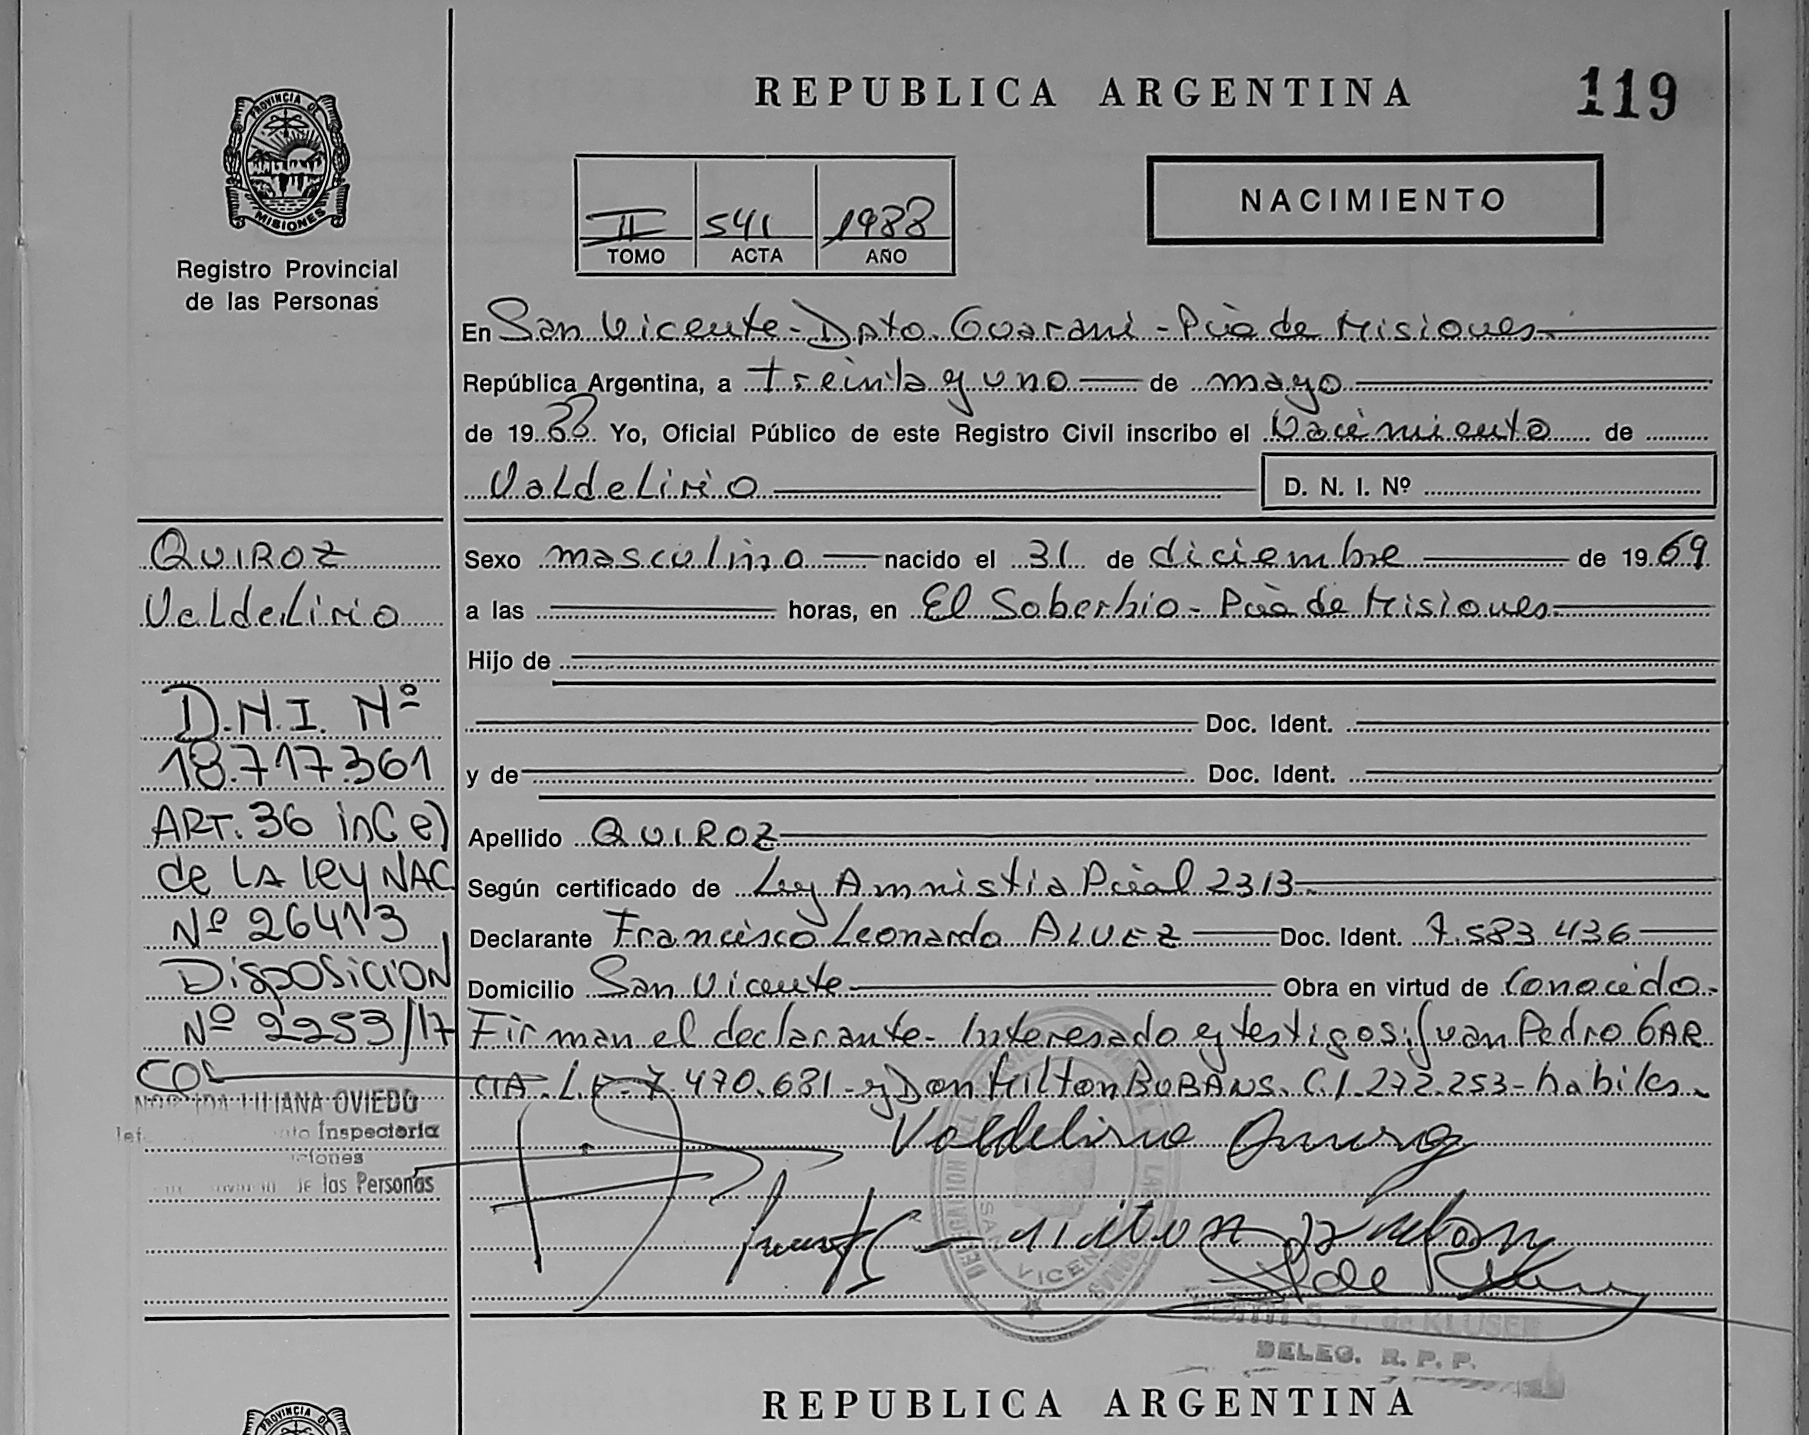 REPUBLICA ARGENTINA
119
PROVINCIA DE
MISIONES
Registro Provincial
de las Personas
II 541 1988
TOMO ACTA AÑO
NACIMIENTO
En San Vicente - Dpto. Guarani - Pcia de Misiones
República Argentina, a treinta y uno de mayo
de 1988 Yo, Oficial Público de este Registro Civil inscribo el Nacimiento de
Valdelirio
D. N. I. Nº
QUIROZ
Valdelirio
D.N.I. Nº
18.717.361
ART. 36 inc e)
de LA Ley NAC
Nº 26413
DISPOSICION
Nº 2253/17
LILIANA OVIEDO
Inspectoria
de las Personas
Sexo masculino nacido el 31 de diciembre de 1969
a las horas, en El Soberbio - Pcia de Misiones
Hijo de
Doc. Ident.
y de Doc. Ident.
Apellido QUIROZ
Según certificado de Ley Amnistia Pcial 2313
Declarante Francisco Leonardo ALVEZ Doc. Ident. 7.583.436
Domicilio San Vicente Obra en virtud de Conocido
Firman el declarante - Interesado y testigos: Juan Pedro GAR
CIA - L.E. 7.470.681 - y Don Milton BUBANS. C.I. 272.253 - habiles
Valdelirio Quiroz
SAN VICENTE
S. T. de KLUSER
DELEG. R. P. P.
PROVINCIA DE
REPUBLICA ARGENTINA